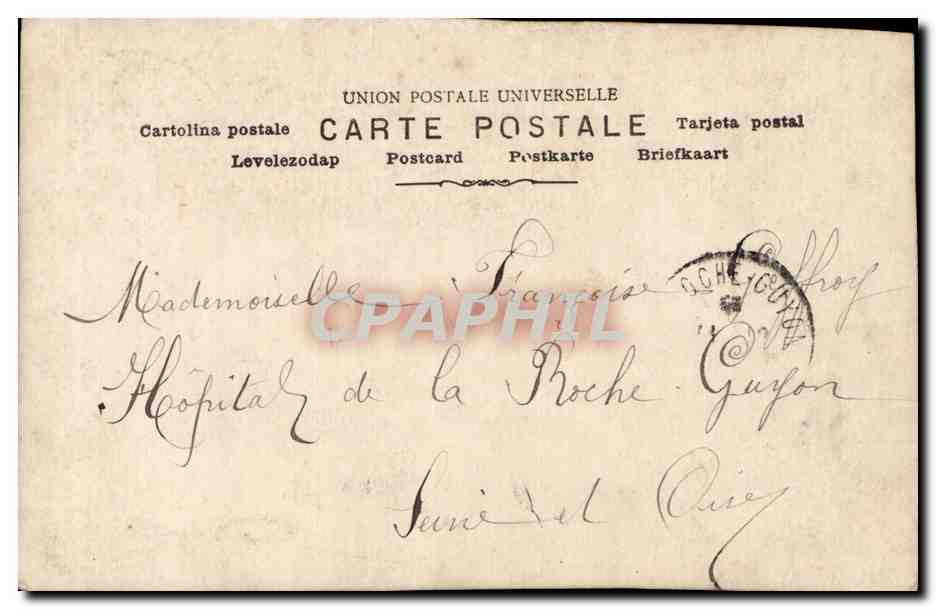 UNION POSTALE UNIVERSELLE
Cartolina postale CARTE POSTALE Tarjeta postal
Levelezodap Postcard Postkarte Briefkaart
Mademoiselle Françoise Geffroy
OCHE-GUYON
CPAPHIL
Hôpital de la Roche Guyon
Seine et Oise